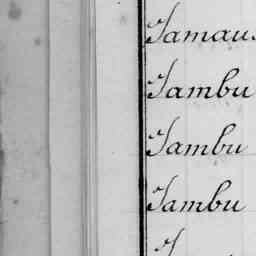 Tamaus
Tambu
Tambu
Tambu
T